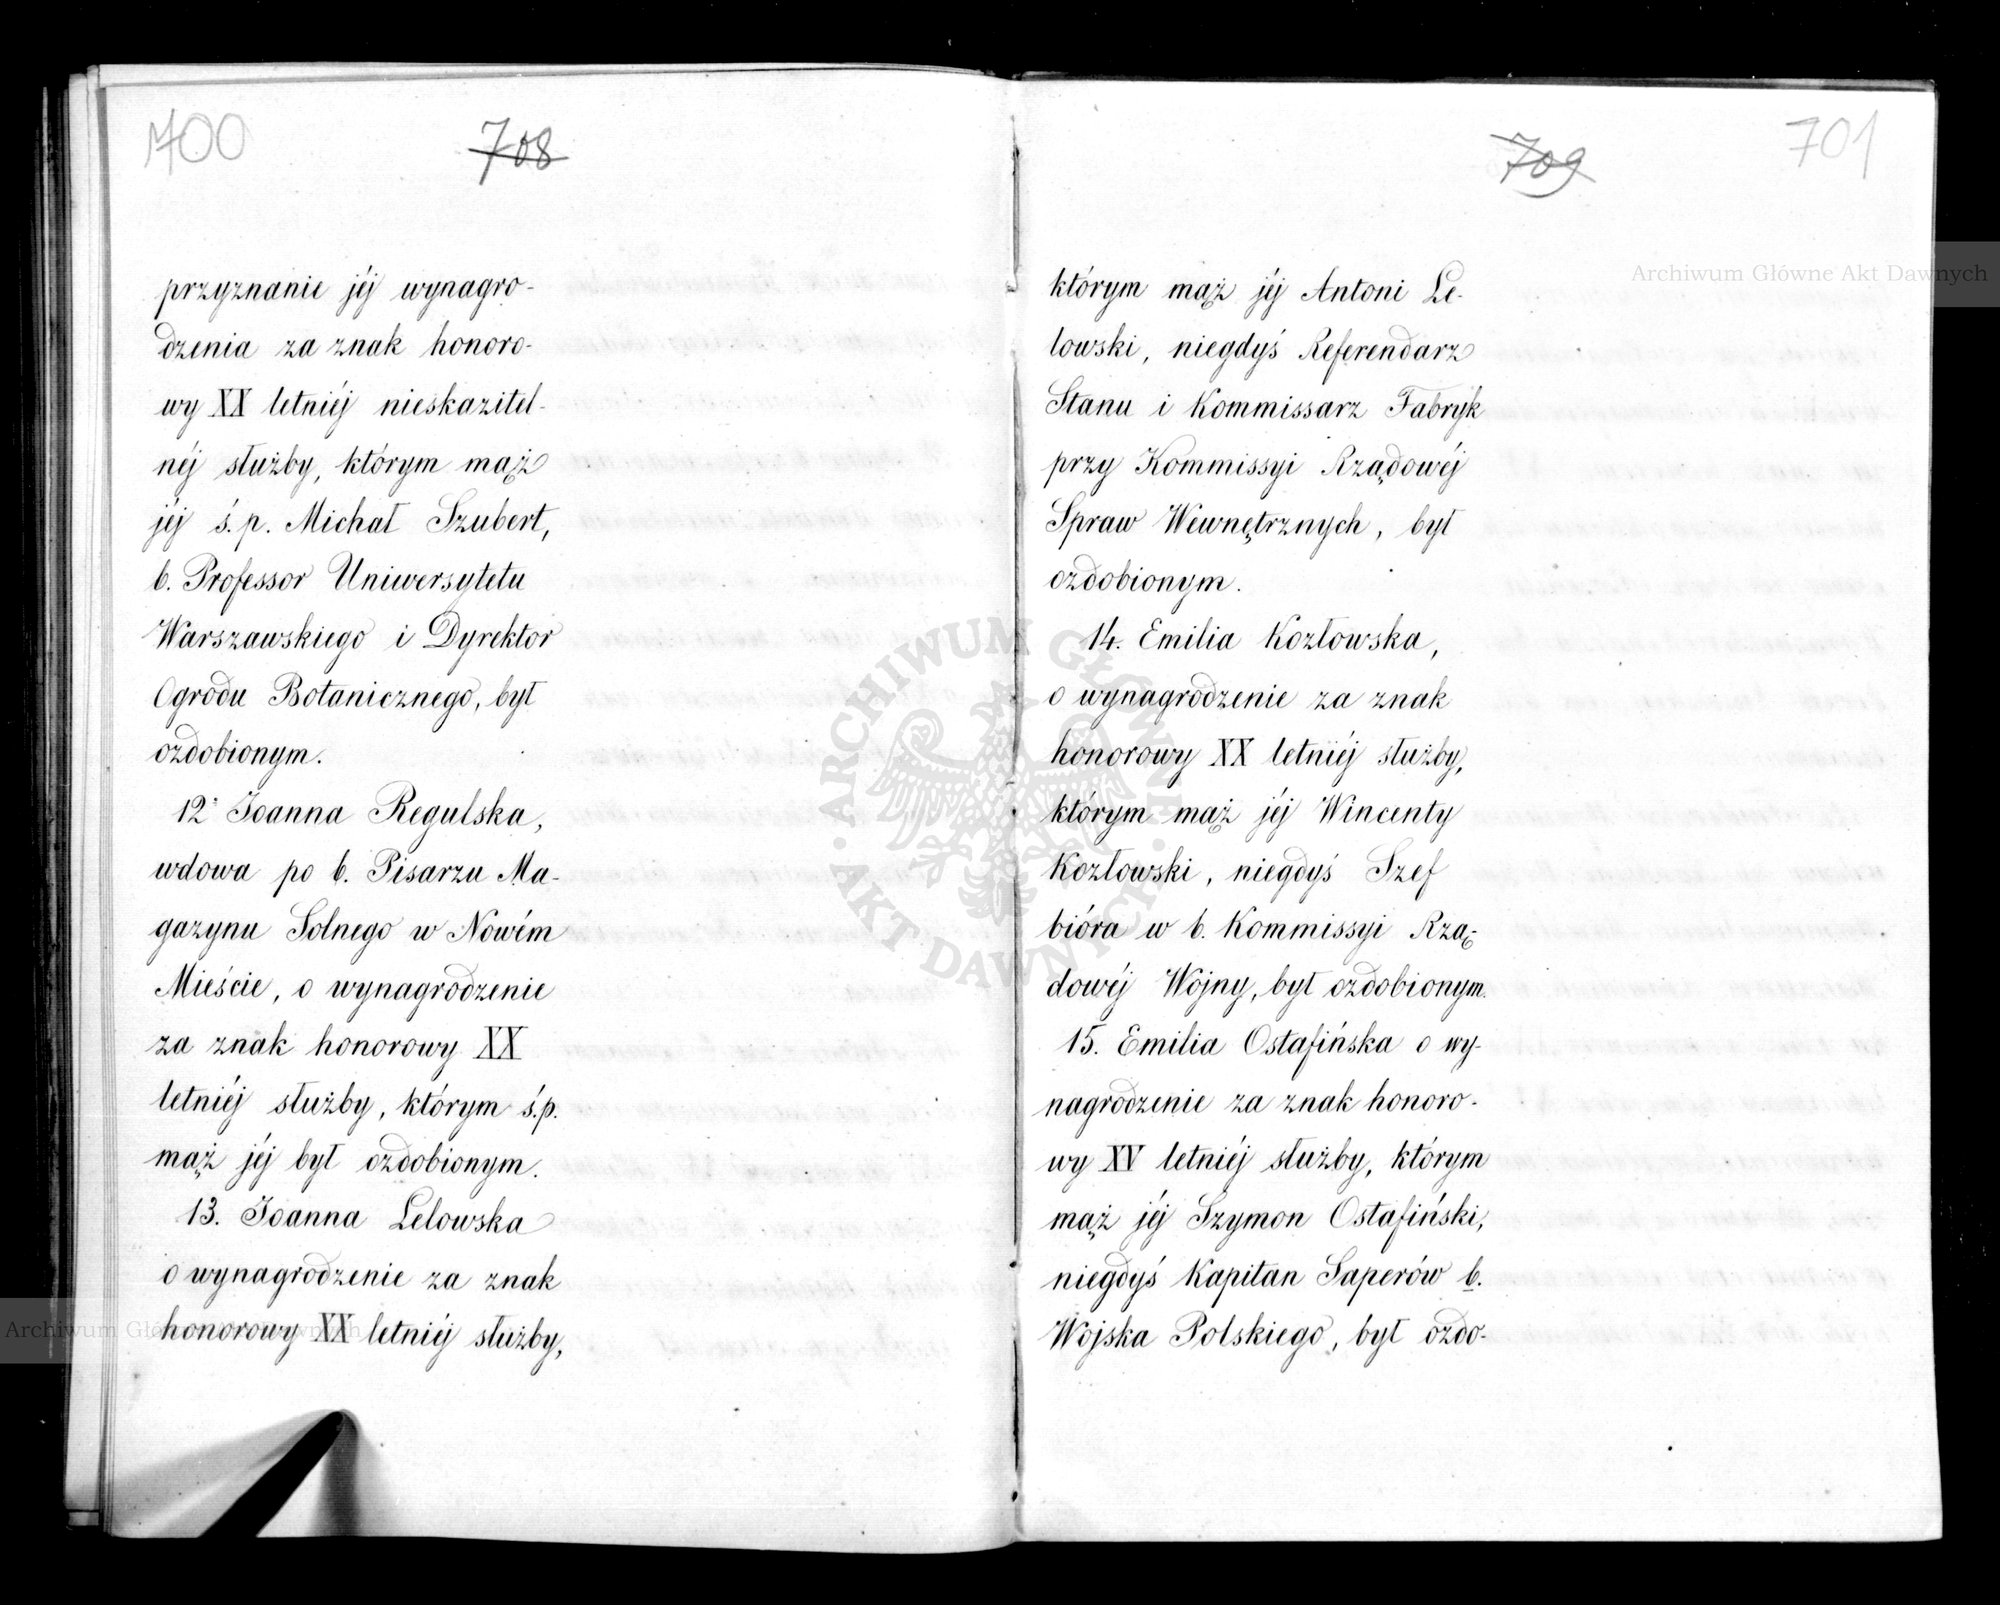 700
708
przyznanie jéj wynagro-
dzenia za znak honoro-
wy XX letniéj nieskazitel-
néj służby, którym mąż
jéj ś.p. Michał Szubert,
b. Professor Uniwersytetu
Warszawskiego i Dyrektor
Ogrodu Botanicznego, był
ozdobionym.
12. Joanna Regulska,
wdowa po b. Pisarzu Ma-
gazynu Solnego w Nowém
Mieście, o wynagrodzenie
za znak honorowy XX
letniéj służby, którym ś.p.
mąż jéj był ozdobionym.
13. Joanna Lelowska
o wynagrodzenie za znak
honorowy XX letniéj służby,
709
701
którym mąż jéj Antoni Le-
lowski, niegdyś Referendarz
Stanu i Kommissarz Fabryk
przy Kommissyi Rządowéj
Spraw Wewnętrznych, był
ozdobionym.
14. Emilia Kozłowska,
o wynagrodzenie za znak
honorowy XX letniéj służby,
którym mąż jéj Wincenty
Kozłowski, niegdyś Szef
bióra w b. Kommissyi Rzą-
dowéj Wojny, był ozdobionym.
15. Emilia Ostafińska o wy-
nagrodzenie za znak honoro-
wy XV letniéj służby, którym
mąż jéj Szymon Ostafiński,
niegdyś Kapitan Saperów b.
Wojska Polskiego, był ozdo-
Archiwum Główne Akt Dawnych
ARCHIWUM GŁÓWNE
AKT DAWNYCH
Archiwum Główne Akt Dawnych